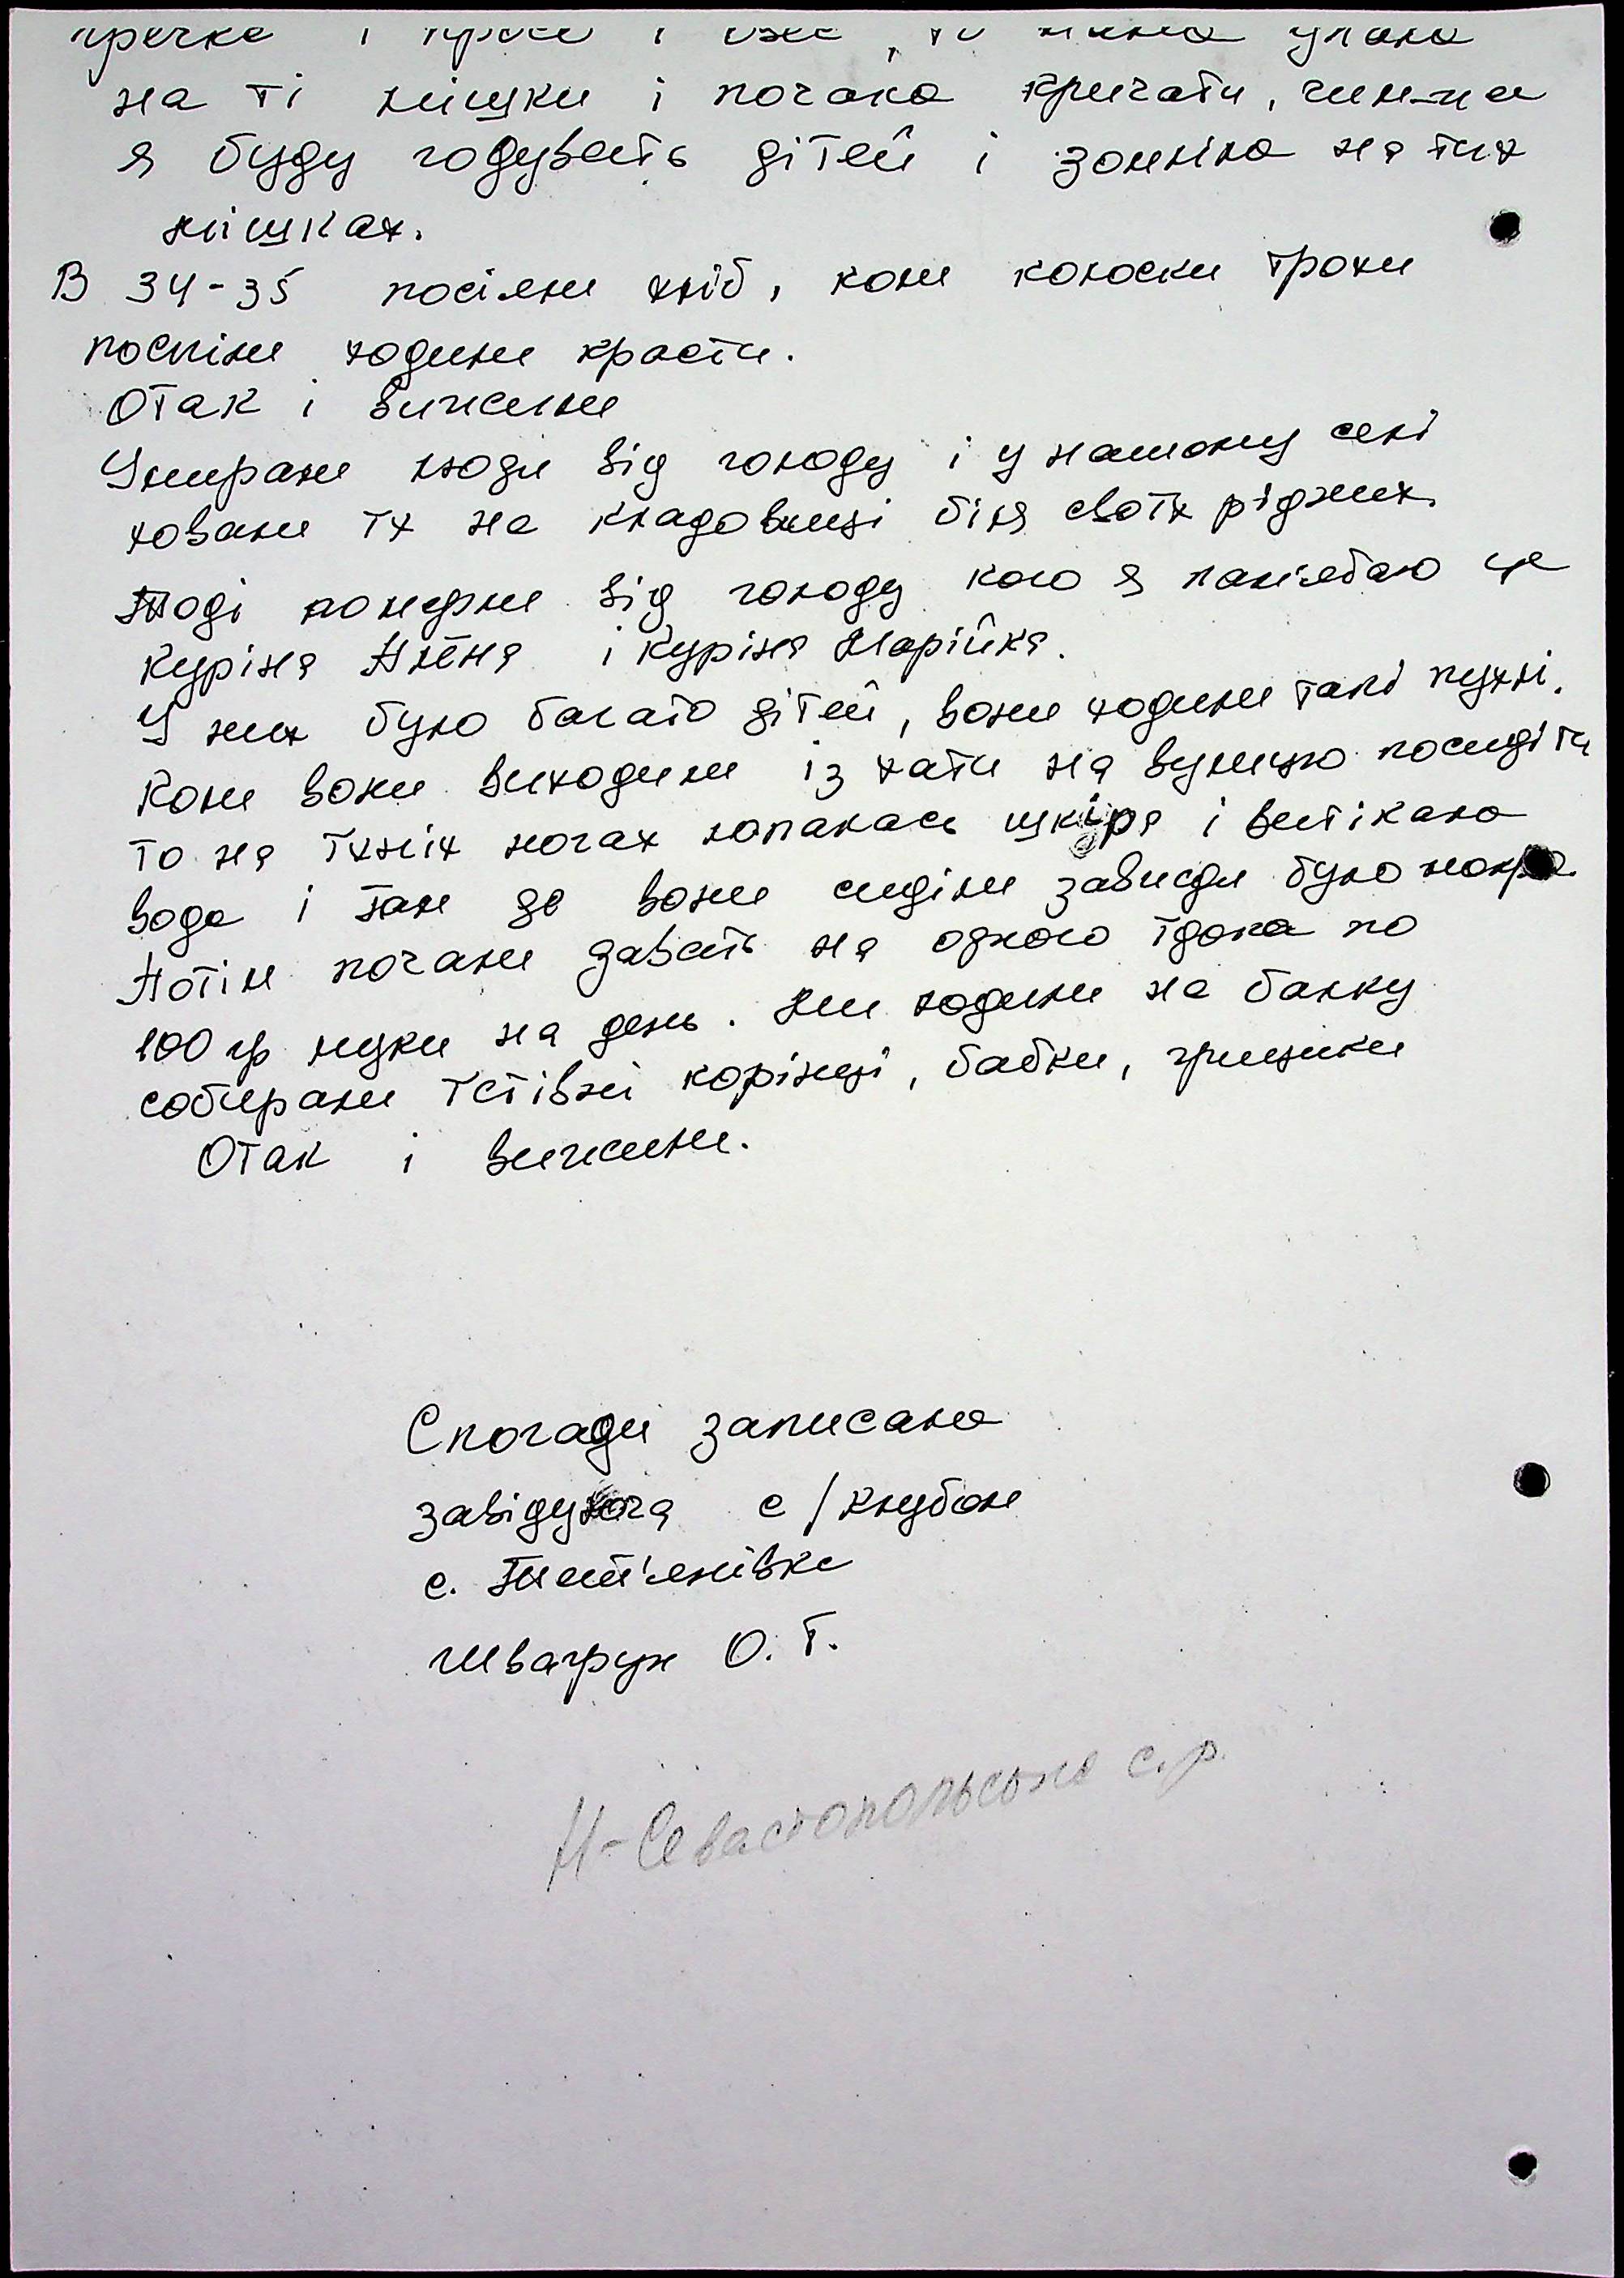 гречка і просо і овес, то мама упала
на ті мішки і почала кричати, чим-же
я буду годувать дітей і зомліла на тих
мішках.
В 34-35 посіяли хліб, коли колоски трохи
поспіли ходили красти.
Отак і вижили
Умирали люди від голоду і у нашому селі
ховали їх на кладовищі біля своїх рідних.
Тоді померли від голоду кого я пам'ятаю це
Куріна Алёна і Куріна Марійка.
У них було багато дітей, вони ходили такі пухлі.
Коли вони виходили із хати на вулицю посидіти
то на їхніх ногах лопалась шкіра і витікала
вода і там де вони сиділи завжди було мокро.
Потім почали давать на одного їдока по
100 гр муки на день. Ми ходили на балку
собирали їстівні корінці, бабки, грицики
Отак і вижили.
Спогади записала
завідуюча с/клубом
с. Тетянівка
Швагрун О. Т.
Н-Севастопольська с.р.